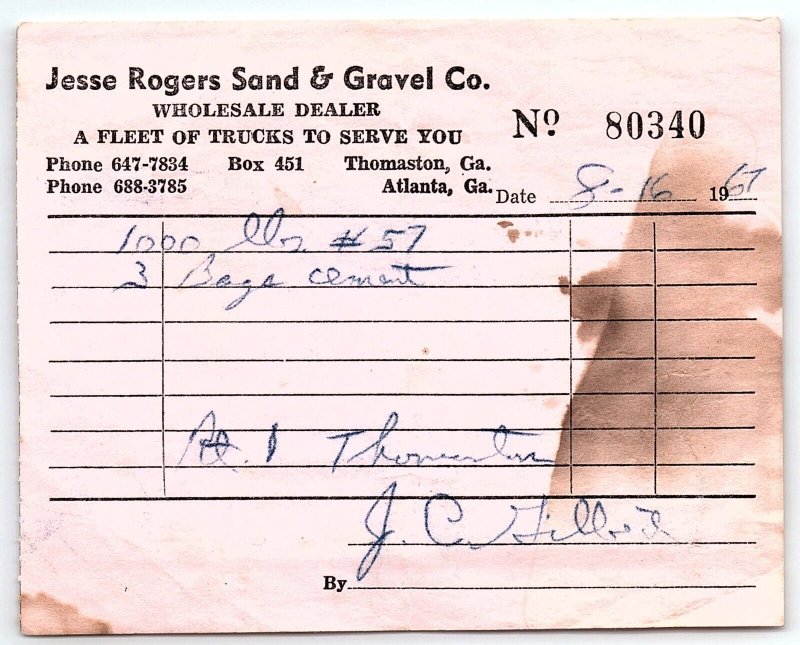 Jesse Rogers Sand & Gravel Co.
WHOLESALE DEALER
A FLEET OF TRUCKS TO SERVE YOU
Phone 647-7834 Box 451 Thomaston, Ga.
Phone 688-3785 Atlanta, Ga.
No 80340
Date 8-16 1967
1000 lbs #57
3 Bags cement
Rt. 1 Thomaston
J. C.
By